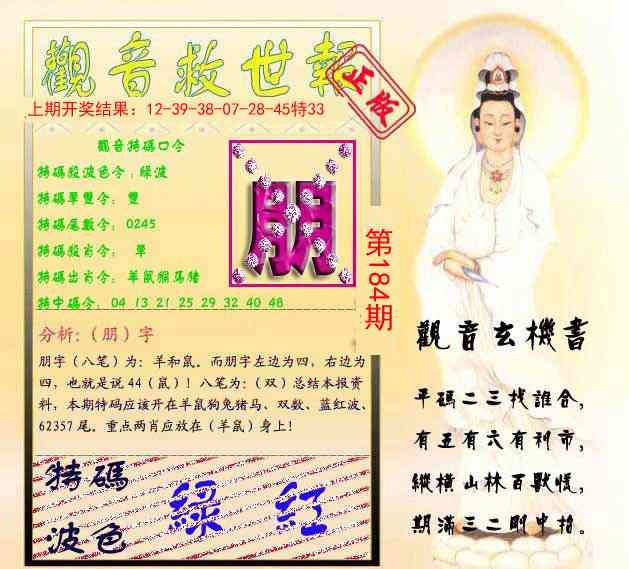 觀音救世報
正版
上期开奖结果：12-39-38-07-28-45特33
觀音特碼口令
特碼殺波色令：綠波
特碼單雙令： 雙
特碼尾數令： 0245
特碼殺肖令： 單
特碼出肖令：羊鼠猴馬豬
特中碼令： 04 13 21 25 29 32 40 48
朋
第184期
分析:（朋）字
朋字（八笔）为：羊和鼠。而朋字左边为四，右边为
四，也就是说 44（鼠）！八笔为：（双）总结本报资
料，本期特码应该开在羊鼠狗兔猪马、双数、蓝红波、
62357 尾。重点两肖应放在（羊鼠）身上！
特碼
波色
綠 紅
觀音玄機書
平碼二三找誰合，
有五有六有利市，
縱橫山林百獸慌，
期滿三二剛中指。